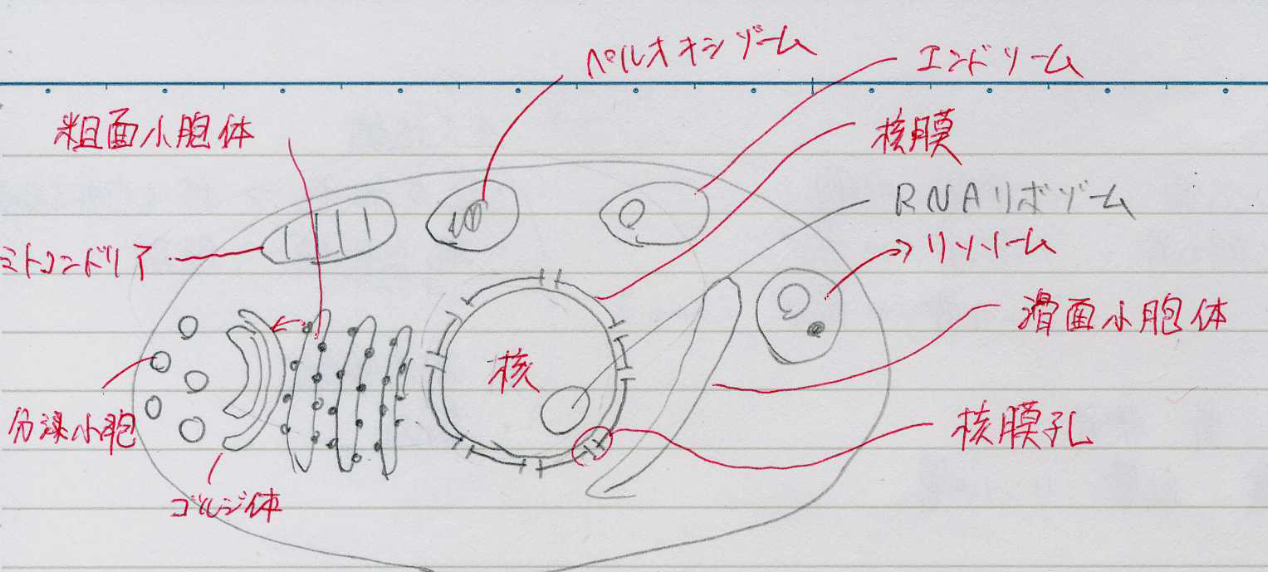 ペルオキシゾーム
エンドソーム
粗面小胞体
核膜
RNAリボゾーム
ミトコンドリア
リソソーム
滑面小胞体
核
分泌小胞
核膜孔
ゴルジ体